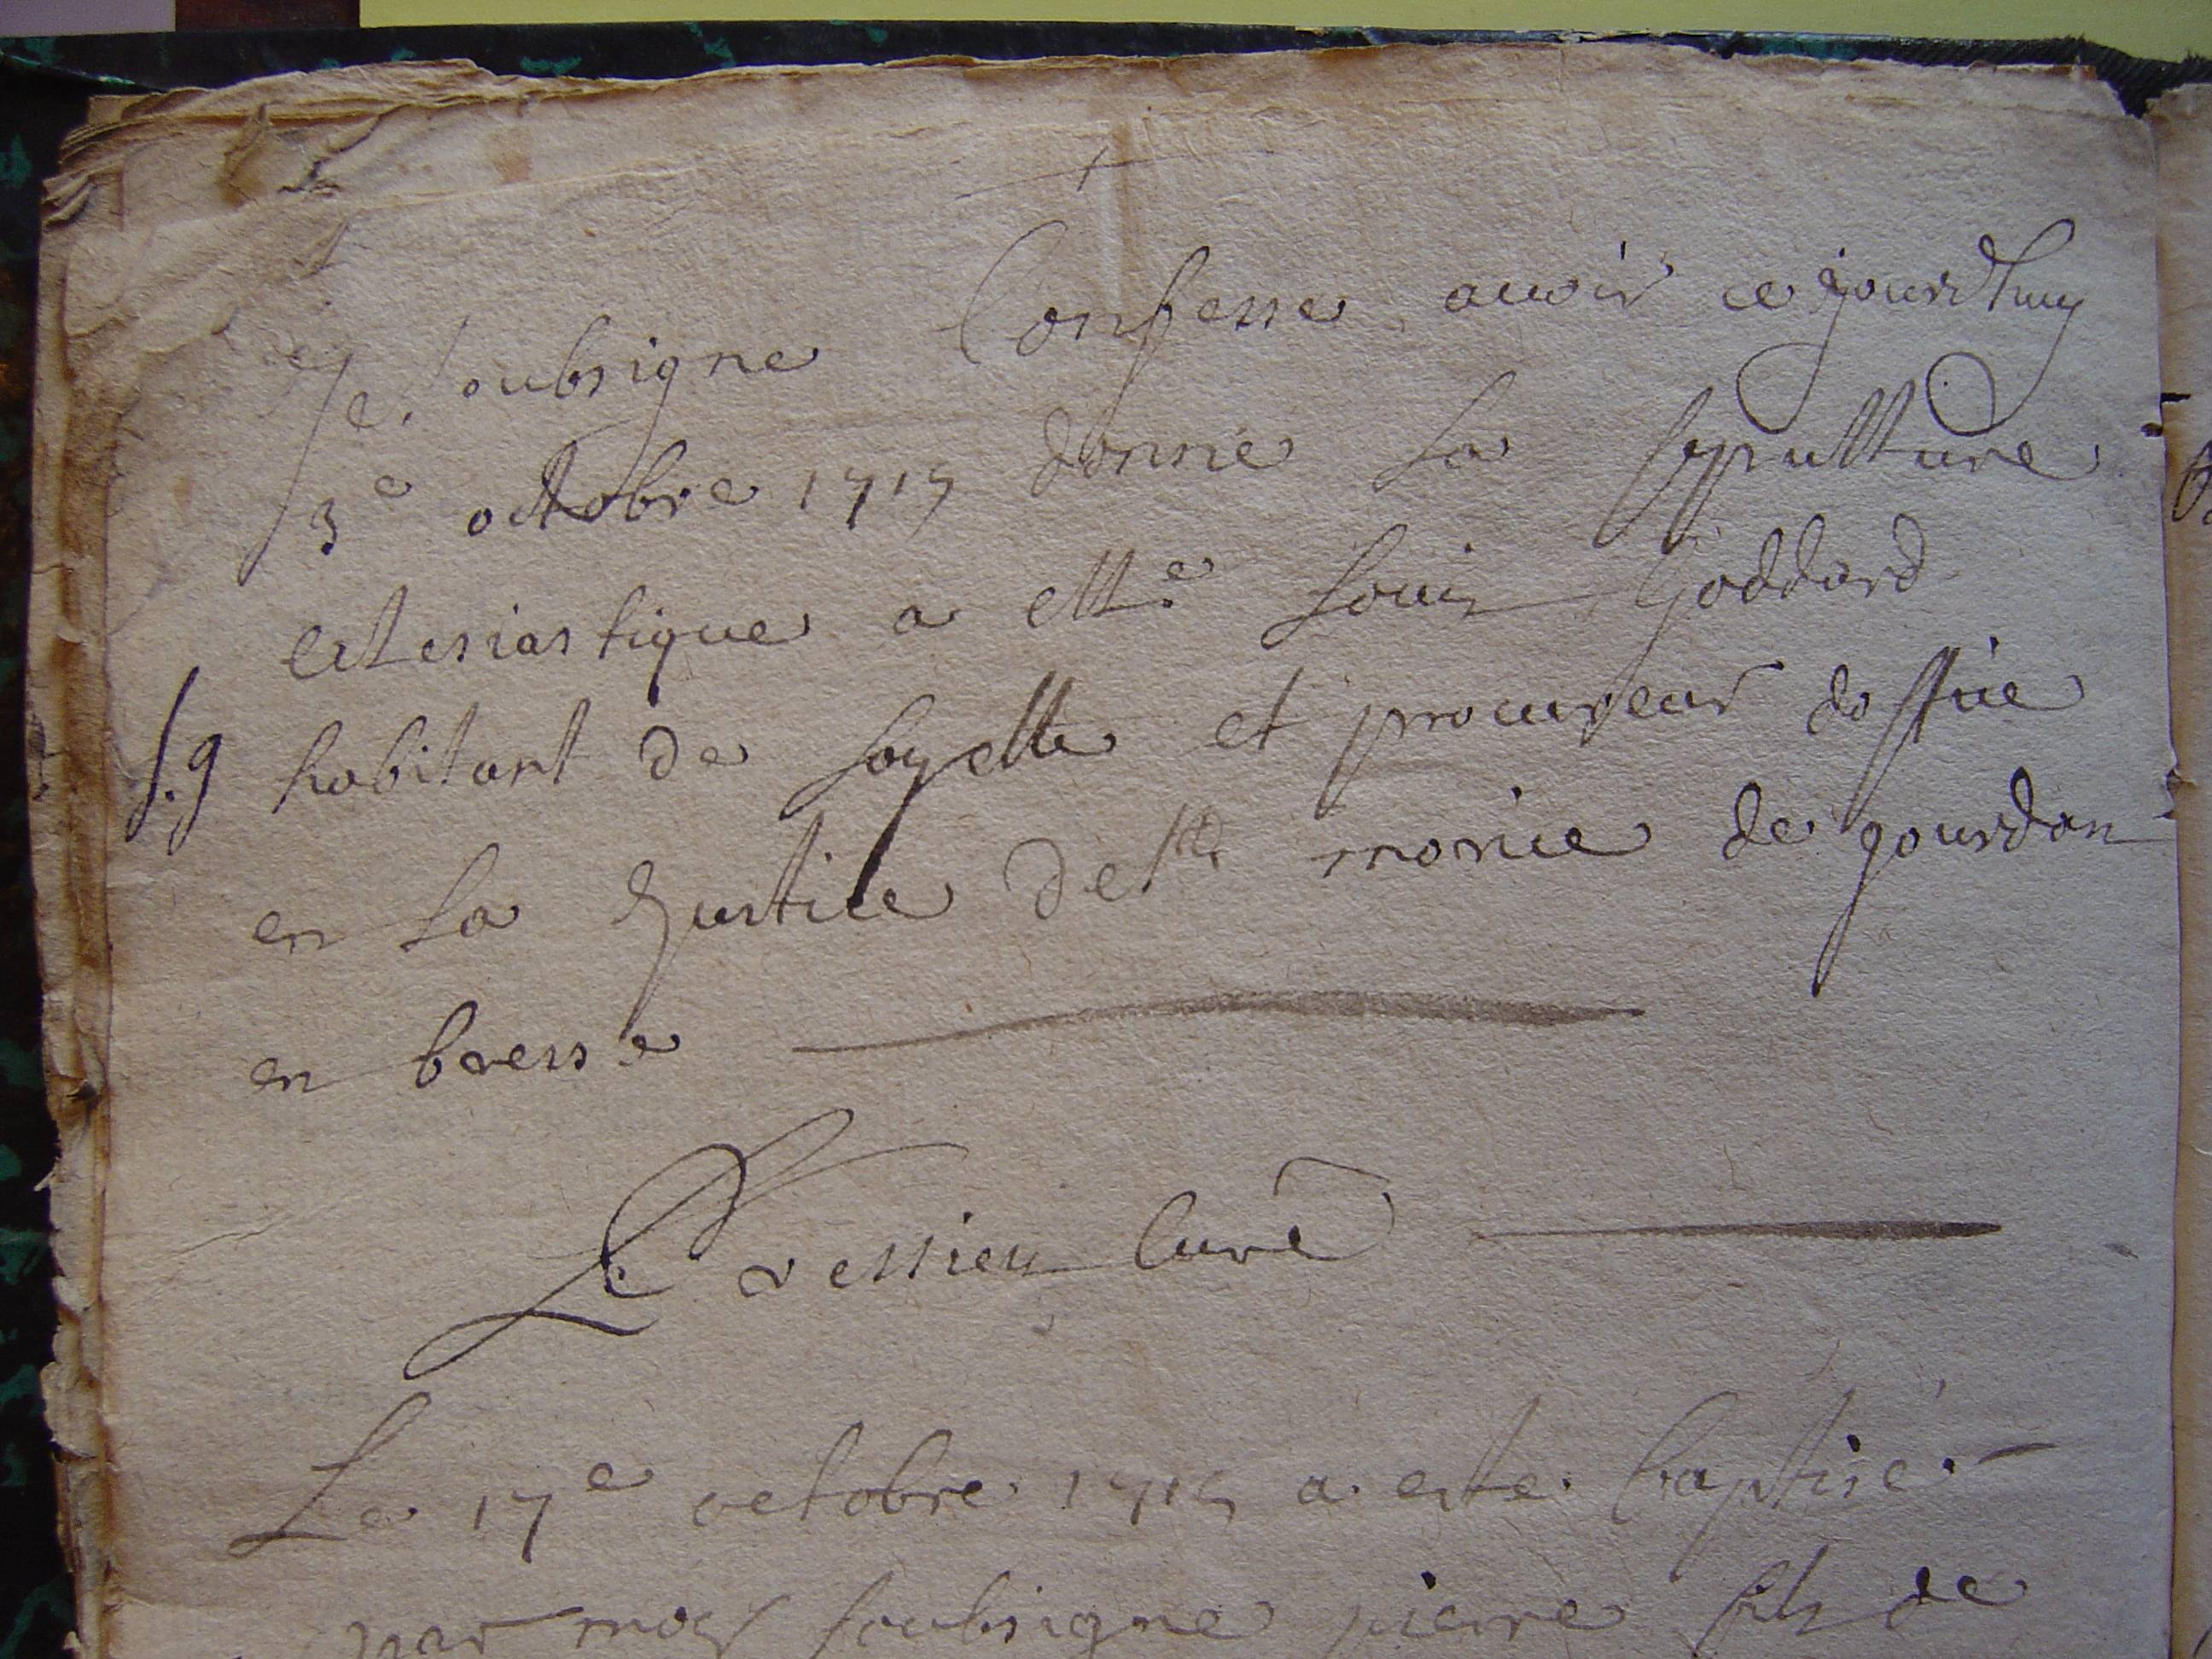 Je soubsigne Confesse auoir ce jourdhuy
3e octobre 1715 donné la sepulture
eclesiastique a Me Louis Goddard
S.g habitant de loyette et procureur doffice
en la Justice de ste monice de gourdan
en bresse
Vessieu Curé
Le 17e octobre 1715 a esté baptisé
par moy soubsigne pierre fils de